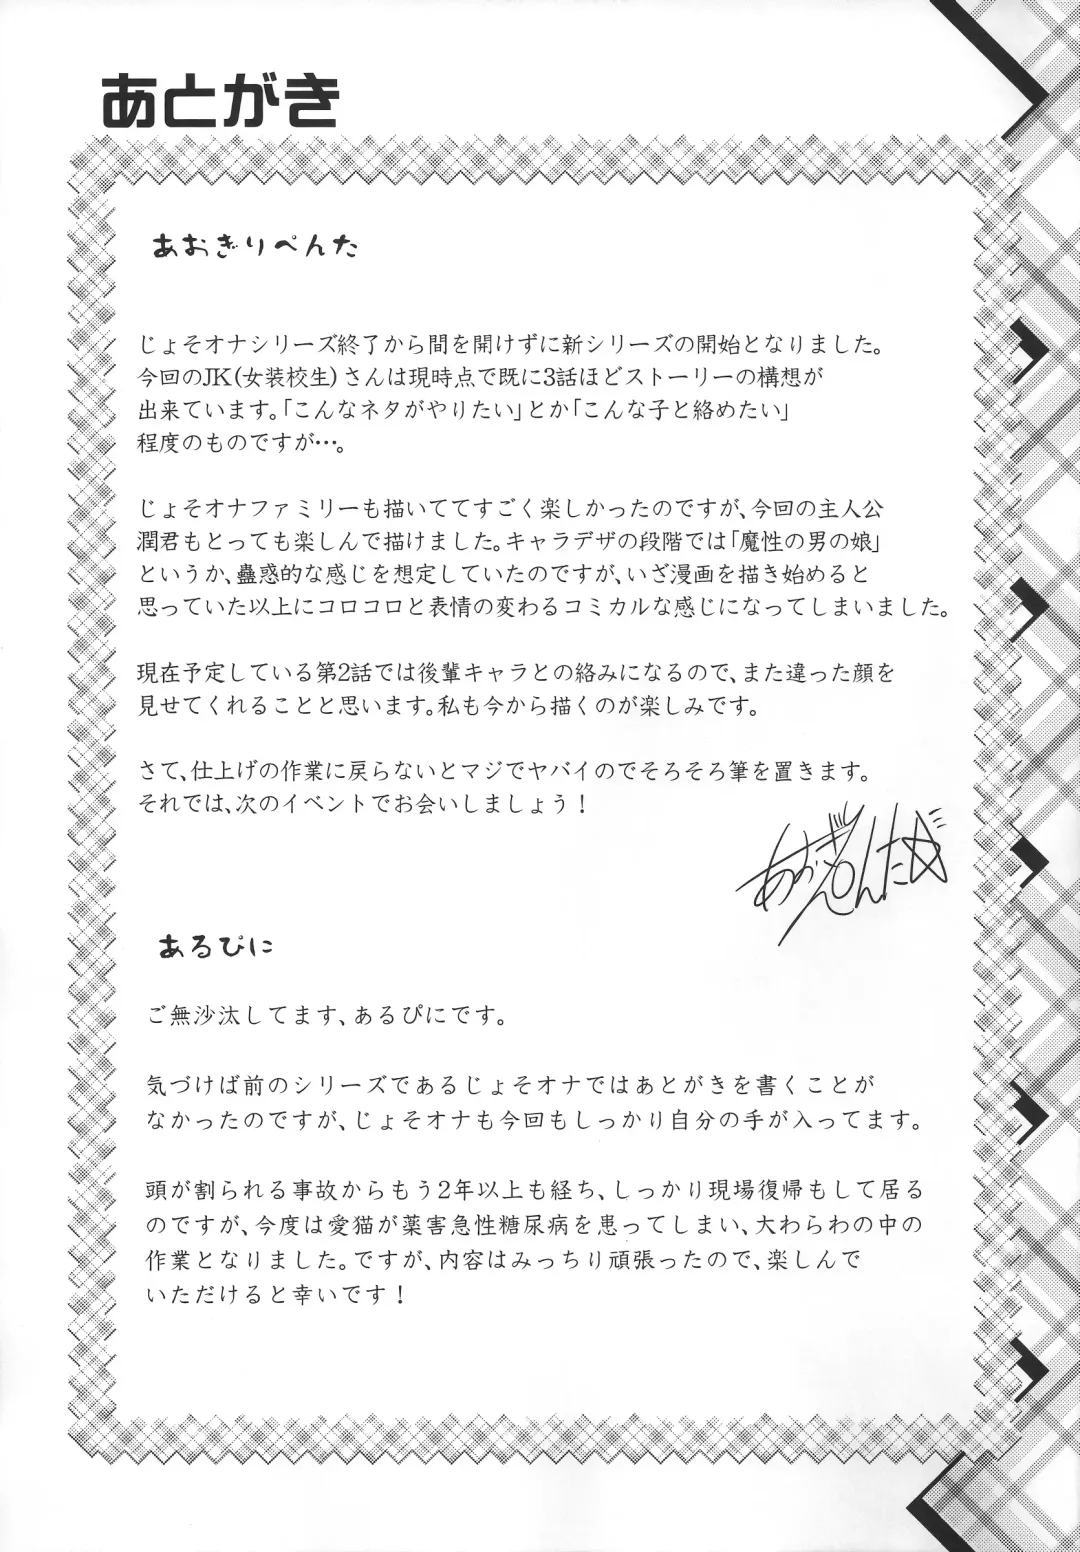 あとがき
あおぎりぺんた
じょそオナシリーズ終了から間を開けずに新シリーズの開始となりました。
今回のJK(女装校生)さんは現時点で既に3話ほどストーリーの構想が
出来ています。「こんなネタがやりたい」とか「こんな子と絡めたい」
程度のものですが…。
じょそオナファミリーも描いててすごく楽しかったのですが、今回の主人公
潤君もとっても楽しんで描けました。キャラデザの段階では「魔性の男の娘」
というか、蠱惑的な感じを想定していたのですが、いざ漫画を描き始めると
思っていた以上にコロコロと表情の変わるコミカルな感じになってしまいました。
現在予定している第2話では後輩キャラとの絡みになるので、また違った顔を
見せてくれることと思います。私も今から描くのが楽しみです。
さて、仕上げの作業に戻らないとマジでヤバイのでそろそろ筆を置きます。
それでは、次のイベントでお会いしましょう!
あおぎりぺんた☆
あるぴに
ご無沙汰してます、あるぴにです。
気づけば前のシリーズであるじょそオナではあとがきを書くことが
なかったのですが、じょそオナも今回もしっかり自分の手が入ってます。
頭が割られる事故からもう2年以上も経ち、しっかり現場復帰もして居る
のですが、今度は愛猫が薬害急性糖尿病を患ってしまい、大わらわの中の
作業となりました。ですが、内容はみっちり頑張ったので、楽しんで
いただけると幸いです!